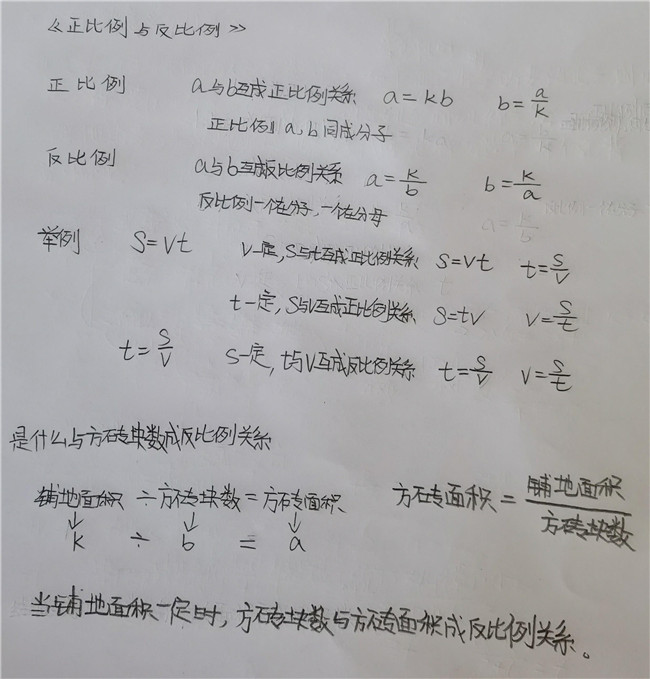 《正比例与反比例》
正比例 a与b互成正比例关系 a=kb b=a/k
正比例 a、b同成分子
反比例 a与b互成反比例关系 a=k/b b=k/a
反比例一个在分子,一个在分母
举例 S=vt v一定,S与t互成正比例关系 S=vt t=S/v
t一定,S与v互成正比例关系 S=tv v=S/t
t=S/v S一定,t与v互成反比例关系 t=S/v v=S/t
是什么与方砖块数成反比例关系
铺地面积÷方砖块数=方砖面积 方砖面积=铺地面积/方砖块数
↓ ↓ ↓
k ÷ b = a
当铺地面积一定时,方砖块数与方砖面积成反比例关系。